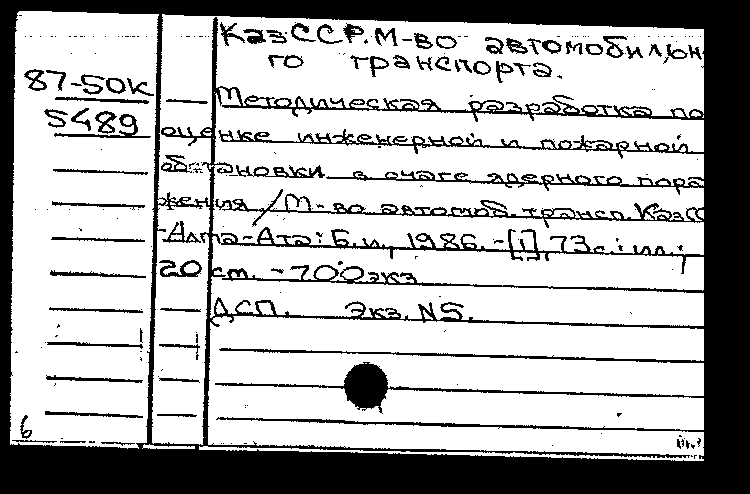 КазССР. М-во автомобильн
го транспорта.
87-50к
5489
Методическая разработка по
оценке инженерной и пожарной
обстановки в очаге ядерного пора
жения / М-во автомоб. трансп. КазСС
- Алма-Ата: Б.и., 1986. - [1], 73 с.: ил.;
20 см. - 700 экз
ДСП. Экз. N5.
6